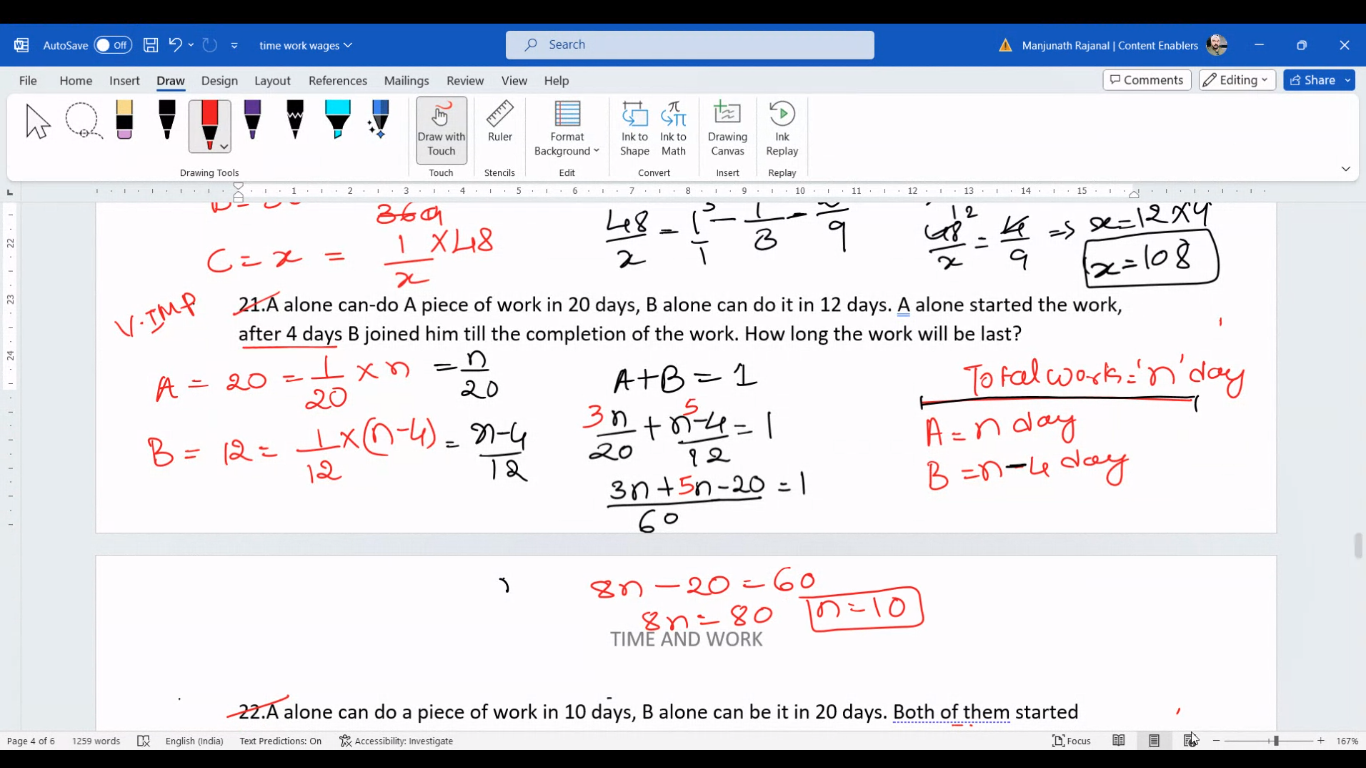 AutoSave Off time work wages Search Manjunath Rajanal | Content Enablers
File Home Insert Draw Design Layout References Mailings Review View Help Comments Editing Share
Draw with Touch Ruler Format Background Ink to Shape Ink to Math Drawing Canvas Ink Replay
Drawing Tools Touch Stencils Edit Convert Insert Replay
1 2 3 4 5 6 7 8 9 10 11 12 13 14 15
22
23
24
C = x = 1/x × 48
48/x = 4/9 => x = 12 × 9
x = 108
V. IMP
21.A alone can-do A piece of work in 20 days, B alone can do it in 12 days. A alone started the work,
after 4 days B joined him till the completion of the work. How long the work will be last?
A = 20 = 1/20 × n = n/20
B = 12 = 1/12 × (n-4) = n-4/12
A+B = 1
3n/20 + 5n-4/12 = 1
3n + 5n - 20/60 = 1
Total work = 'n' day
A = n day
B = n-4 day
8n - 20 = 60
8n = 80 n = 10
TIME AND WORK
22.A alone can do a piece of work in 10 days, B alone can be it in 20 days. Both of them started
Page 4 of 6 1259 words English (India) Text Predictions: On Accessibility: Investigate Focus 167%